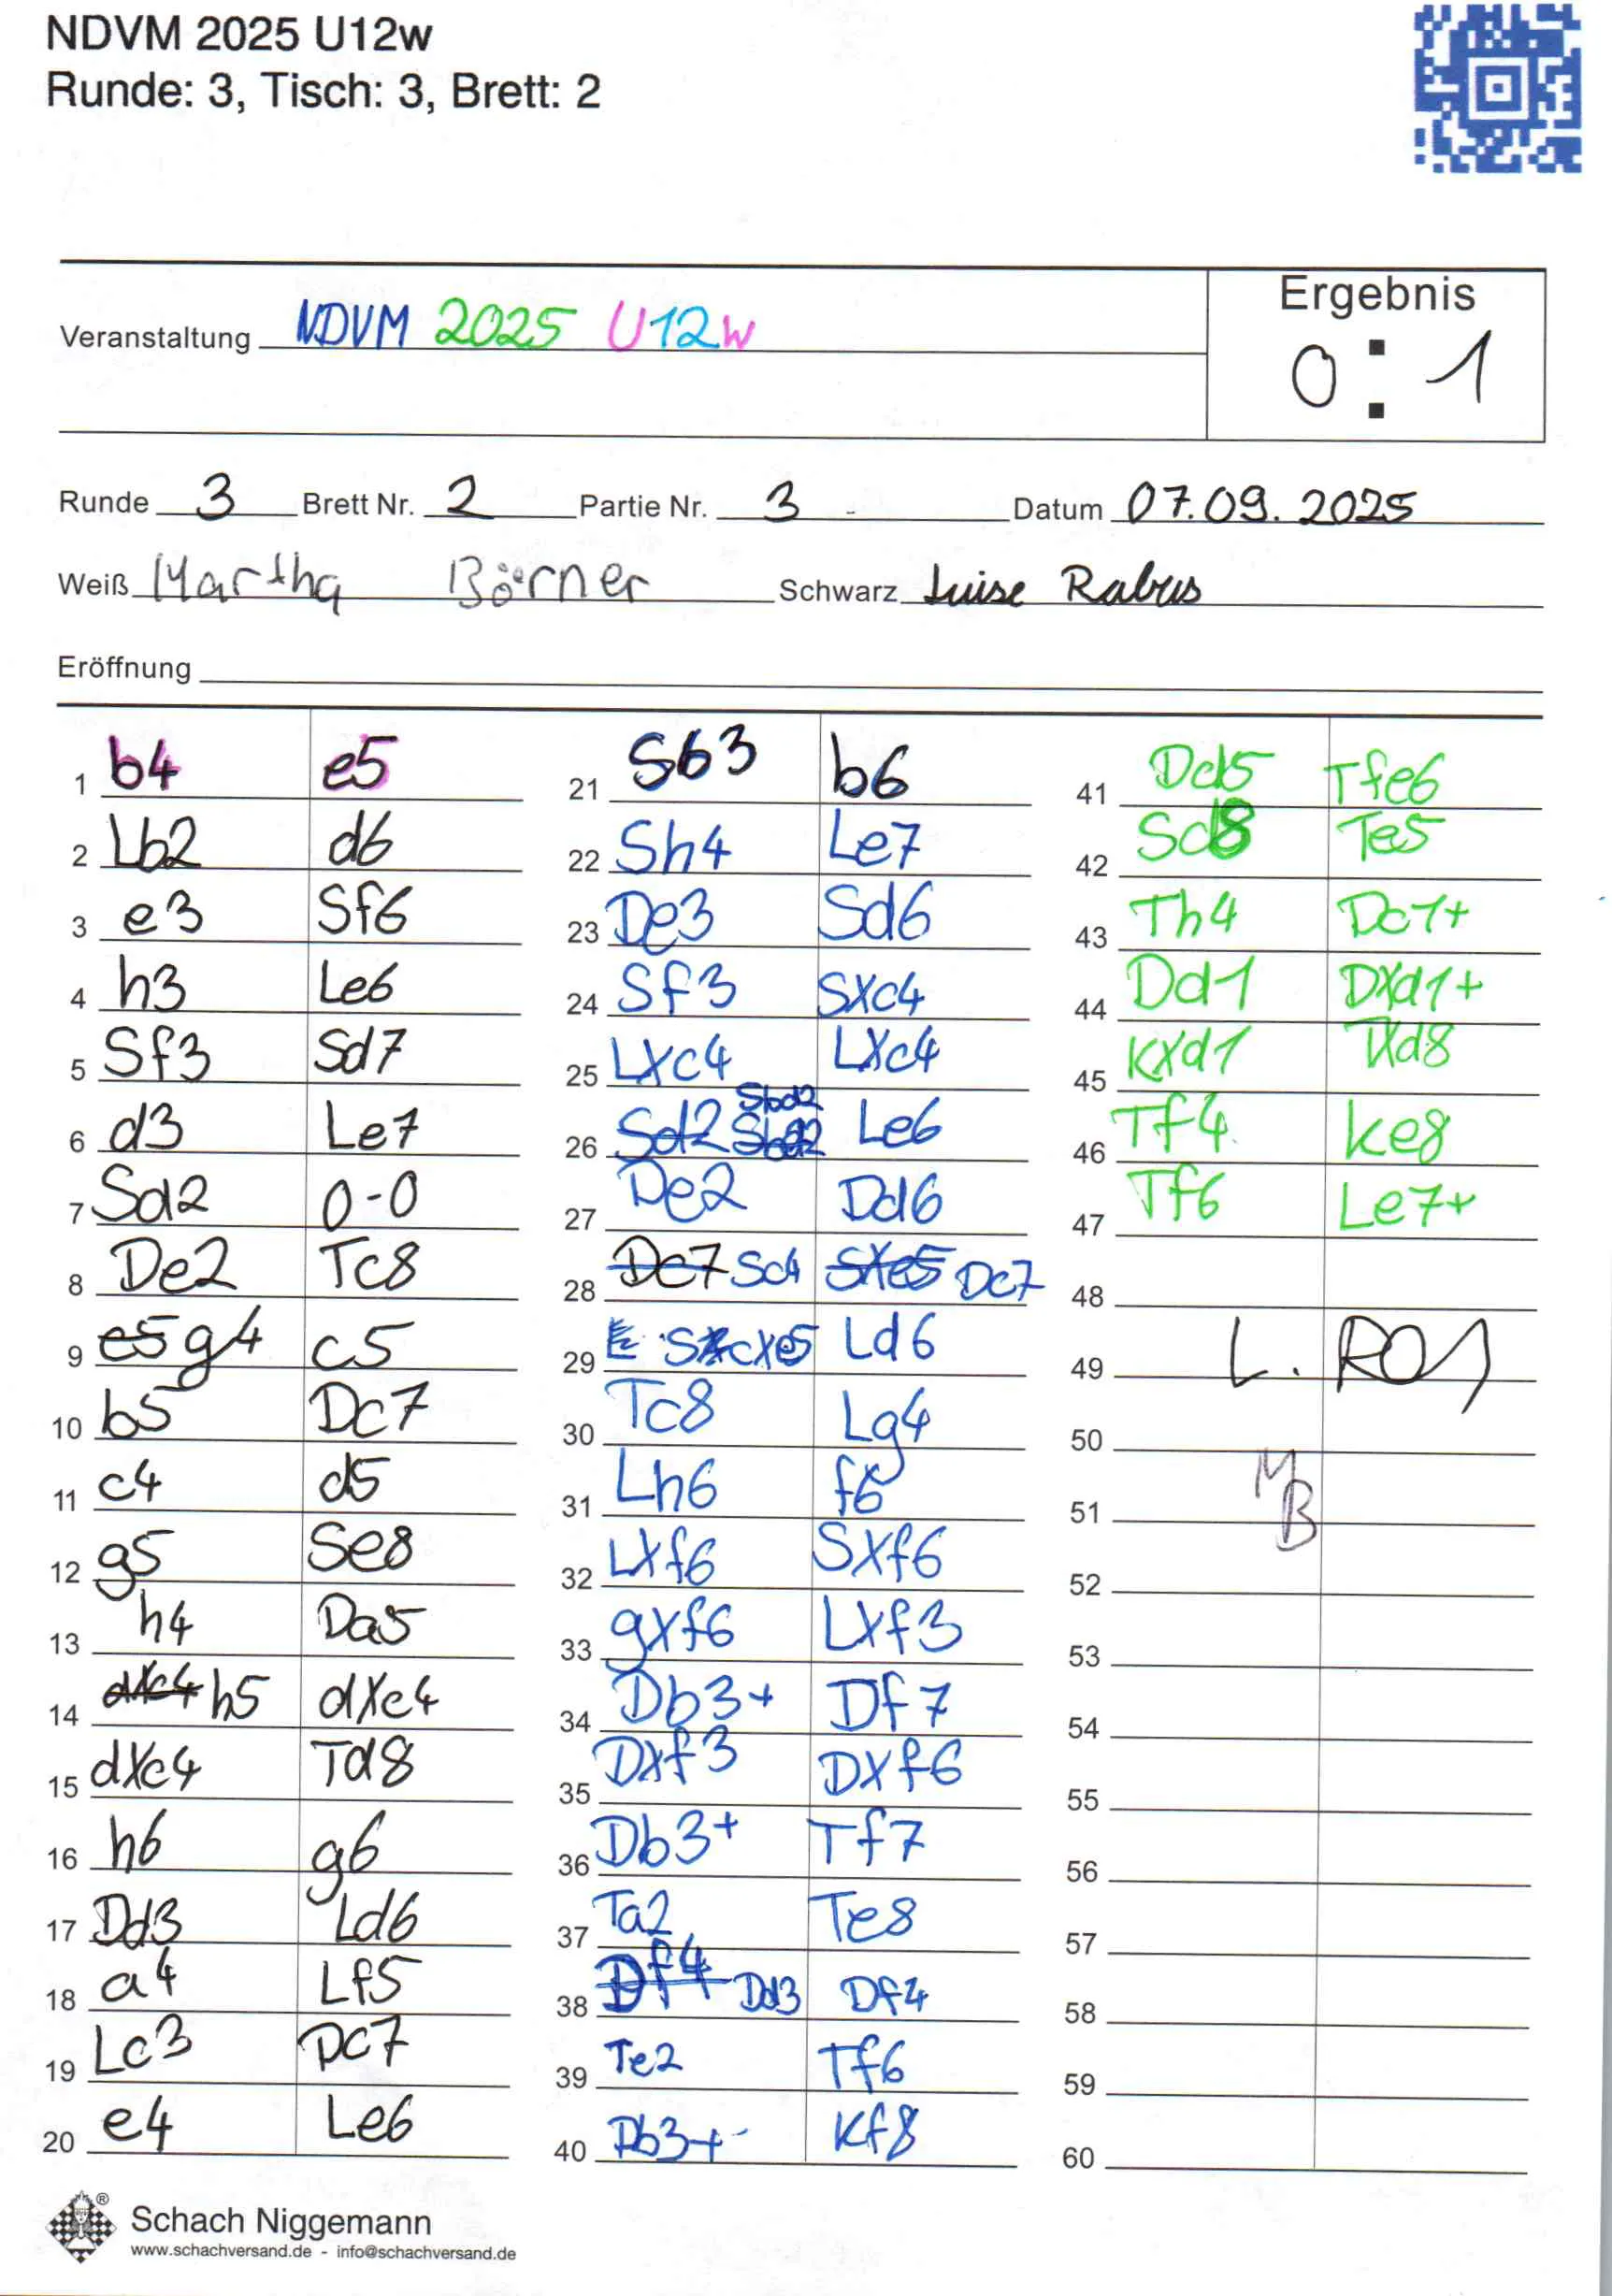 NDVM 2025 U12w
Runde: 3, Tisch: 3, Brett: 2
Ergebnis
Veranstaltung NDVM 2025 U12w
0 : 1
Runde 3 Brett Nr. 2 Partie Nr. 3 Datum 07.09.2025
Weiß Martha Börner Schwarz Luise Rabus
Eröffnung
1 b4 e5
2 Lb2 d6
3 e3 Sf6
4 h3 Le6
5 Sf3 Sd7
6 d3 Le7
7 Sd2 0-0
8 De2 Tc8
9 e5 g4 c5
10 b5 Dc7
11 c4 d5
12 g5 Se8
13 h4 Da5
14 dxc4 h5 dXc4
15 dXc4 Td8
16 h6 g6
17 Dd3 Ld6
18 a4 Lf5
19 Lc3 Dc7
20 e4 Le6
21 Sb3 b6
22 Sh4 Le7
23 De3 Sd6
24 Sf3 SXc4
25 LXc4 LXc4
26 Sd2 Sbd2 Sbd2 Le6
27 De2 Dd6
28 Dc7 Sc4 SXe5 Dc7
29 SxcXe5 Ld6
30 Tc8 Lg4
31 Lh6 f6
32 LXf6 SXf6
33 gxf6 LXf3
34 Db3+ Df7
35 Dxf3 DXf6
36 Db3+ Tf7
37 Ta2 Te8
38 Df4 Dd3 Df4
39 Te2 Tf6
40 Db3+ Kf8
41 Dd5 Tfe6
42 Sd8 Te5
43 Th4 Dc1+
44 Dd1 DXd1+
45 KXd1 TXd8
46 Tf4 Ke8
47 Tf6 Le7+
48
49 L.
50
51 MB
52
53
54
55
56
57
58
59
60
®
Schach Niggemann
www.schachversand.de - info@schachversand.de